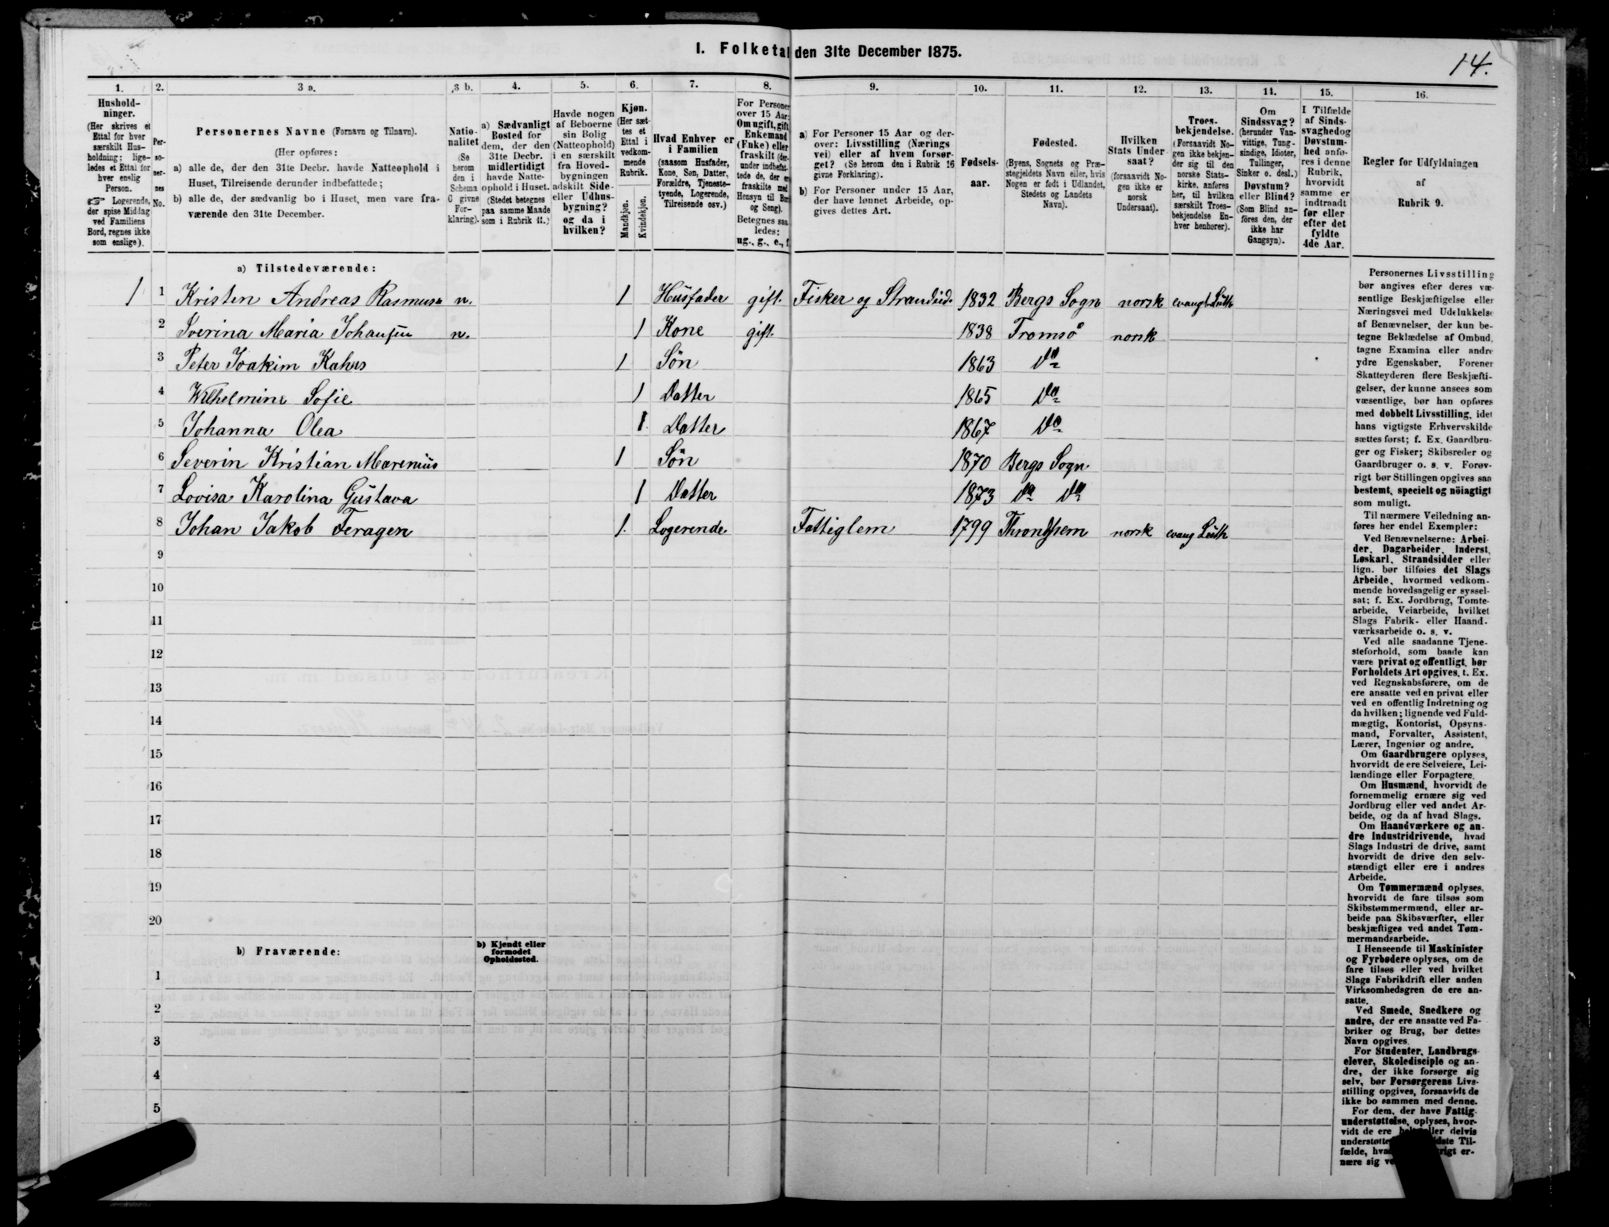 I. Folketal den 31te December 1875.
14.
1.
Hushold-
ninger.
(Her skrives et
Ettal for hver
særskilt Hus-
holdning; lige-
ledes et Ettal for
hver enslig
Person.
☞ Logerende,
der spise Middag
ved Familiens
Bord, regnes ikke
som enslige).
2.
Per-
so-
ner-
nes
No.
3 a.
Personernes Navne (Fornavn og Tilnavn).
(Her opføres:
a) alle de, der den 31te Decbr. havde Natteophold i
Huset, Tilreisende derunder indbefattede;
b) alle de, der sædvanlig bo i Huset, men vare fra-
værende den 31te December.
3 b.
Natio-
nalitet
(Se
herom
den i
Schema
C givne
For-
klaring).
4.
a) Sædvanligt
Bosted for
dem, der den
31te Decbr.
midlertidigt
havde Natte-
ophold i Huset.
(Stedet betegnes
paa samme Maade
som i Rubrik 11.)
5.
Havde nogen
af Beboerne
sin Bolig
(Natteophold)
i en særskilt
fra Hoved-
bygningen
adskilt Side-
eller Udhus-
bygning?
og da i
hvilken?
6.
Kjøn.
(Her sæt-
tes et
Ettal i
vedkom-
mende
Rubrik.
Mandkjøn.
Kvindekjøn.
7.
Hvad Enhver er
i Familien
(saasom Husfader,
Kone, Søn, Datter,
Forældre, Tjeneste-
tyende, Logerende,
Tilreisende osv.)
8.
For Personer
over 15 Aar:
Om ugift, gift,
Enkemand
(Enke) eller
fraskilt
Betegnes saa-
ledes:
ug., g., e., f.
9.
a) For Personer 15 Aar og der-
over: Livsstilling (Nærings
vei) eller af hvem forsør-
get? (Se herom den i Rubrik 16
givne Forklaring).
b) For Personer under 15 Aar,
der have lønnet Arbeide, op-
gives dettes Art.
10.
Fødsels-
aar.
11.
Fødested.
(Byens, Sognets og Præ-
stegjeldets Navn eller, hvis
Nogen er født i Udlandet,
Stedets og Landets
Navn).
12.
Hvilken
Stats Under
saat?
(forsaavidt No-
gen ikke er
norsk
Undersaat).
13.
Troes-
bekjendelse.
(Forsaavidt No-
gen ikke bekjen-
der sig til den
norske Stats-
kirke, anføres
her, til hvilken
særskilt Troes-
bekjendelse En-
hver henhører).
14.
Om
Sindssvag?
(herunder Van-
vittige, Tung-
sindige, Idioter,
Tullinger,
Sinker o. desl.)
Døvstum?
eller Blind?
(Som Blind an-
føres den, der
ikke har
Gangsyn).
15.
I Tilfælde
af Sinds-
svaghed og
Døvstum-
hed anfø-
res i denne
Rubrik,
hvorvidt
samme er
indtraadt
før eller
efter det
fyldte
4de Aar.
16.
Regler for Udfyldningen
af
Rubrik 9.
a) Tilstedeværende:
1 1 Kristen Andreas Rasmusen n. 1 Husfader gift. Fisker og Strandsid. 1832 Bergs Sogn norsk evang Luth
2 Iverina Maria Johansen n. 1 Kone gift. 1838 Tromsø norsk
3 Peter Joakim Kahrs 1 Søn 1863 Do
4 Wilhelmine Sofie 1 Datter 1865 Do
5 Johanna Olea 1 Datter 1867 Do
6 Severin Kristian Marenius 1 Søn 1870 Bergs Sogn
7 Lovisa Karolina Gustava 1 Datter 1873 Do Do
8 Johan Jakob Feragen 1. Logerende Fattiglem 1799 Throndhjem norsk evang Luth
9
10
11
12
13
14
15
16
17
18
19
20
b) Fraværende:
b) Kjendt eller
formodet
Opholdssted.
1
2
3
4
5
Personernes Livsstilling
bør angives efter deres væ-
sentlige Beskjæftigelse eller
Næringsvei med Udelukkelse
af Benævnelser, der kun be-
tegne Beklædelse af Ombud,
tagne Examina eller andre
ydre Egenskaber. Forener
Skatteyderen flere Beskjæfti-
gelser, der kunne ansees som
væsentlige, bør han opføres
med dobbelt Livsstilling, idet
hans vigtigste Erhvervskilde
sættes først; f. Ex. Gaardbru-
ger og Fisker; Skibsreder og
Gaardbruger o. s. v. Forøv-
rigt bør Stillingen opgives saa
bestemt, specielt og nøiagtigt
som muligt.
Til nærmere Veiledning an-
føres her endel Exempler:
Ved Benævnelserne: Arbei-
der, Dagarbeider, Inderst,
Løskarl, Strandsidder eller
lign. bør tilføies det Slags
Arbeide, hvormed vedkom-
mende hovedsagelig er syssel-
sat; f. Ex. Jordbrug, Tomte-
arbeide, Veiarbeide, hvilket
Slags Fabrik- eller Haand-
værksarbeide o. s. v.
Ved alle saadanne Tjene-
steforhold, som baade kan
være privat og offentligt, bør
Forholdets Art opgives, t. Ex.
ved Regnskabsførere, om de
ere ansatte ved en privat eller
ved en offentlig Indretning og
da hvilken; lignende ved Fuld-
mægtig, Kontorist, Opsyns-
mand, Forvalter, Assistent,
Lærer, Ingeniør og andre.
Om Gaardbrugere oplyses,
hvorvidt de ere Selveiere, Lei-
lændinge eller Forpagtere.
Om Husmænd, hvorvidt de
fornemmelig ernære sig ved
Jordbrug eller ved andet Ar-
beide, og da af hvad Slags.
Om Haandværkere og an-
dre Industridrivende, hvad
Slags Industri de drive, samt
hvorvidt de drive den selv-
stændigt eller ere i andres
Arbeide.
Om Tømmermænd oplyses,
hvorvidt de fare tilsøs som
Skibstømmermænd, eller ar-
beide paa Skibsværfter, eller
beskjæftiges ved andet Tøm-
mermandsarbeide.
I Henseende til Maskinister
og Fyrbødere oplyses, om de
fare tilsøs eller ved hvilket
Slags Fabrikdrift eller anden
Virksomhedsgren de ere an-
satte.
Ved Smede, Snedkere og
andre, der ere ansatte ved Fa-
briker og Brug, bør dettes
Navn opgives.
For Studenter, Landbrugs-
elever, Skoledisciple og an-
dre, der ikke forsørge sig
selv, bør Forsørgerens Livs-
stilling opgives, forsaavidt de
ikke bo sammen med denne.
For dem, der have Fattig-
understøttelse, oplyses, hvor-
vidt de ere
delvis
Til-
fælde,
er-
nære sig